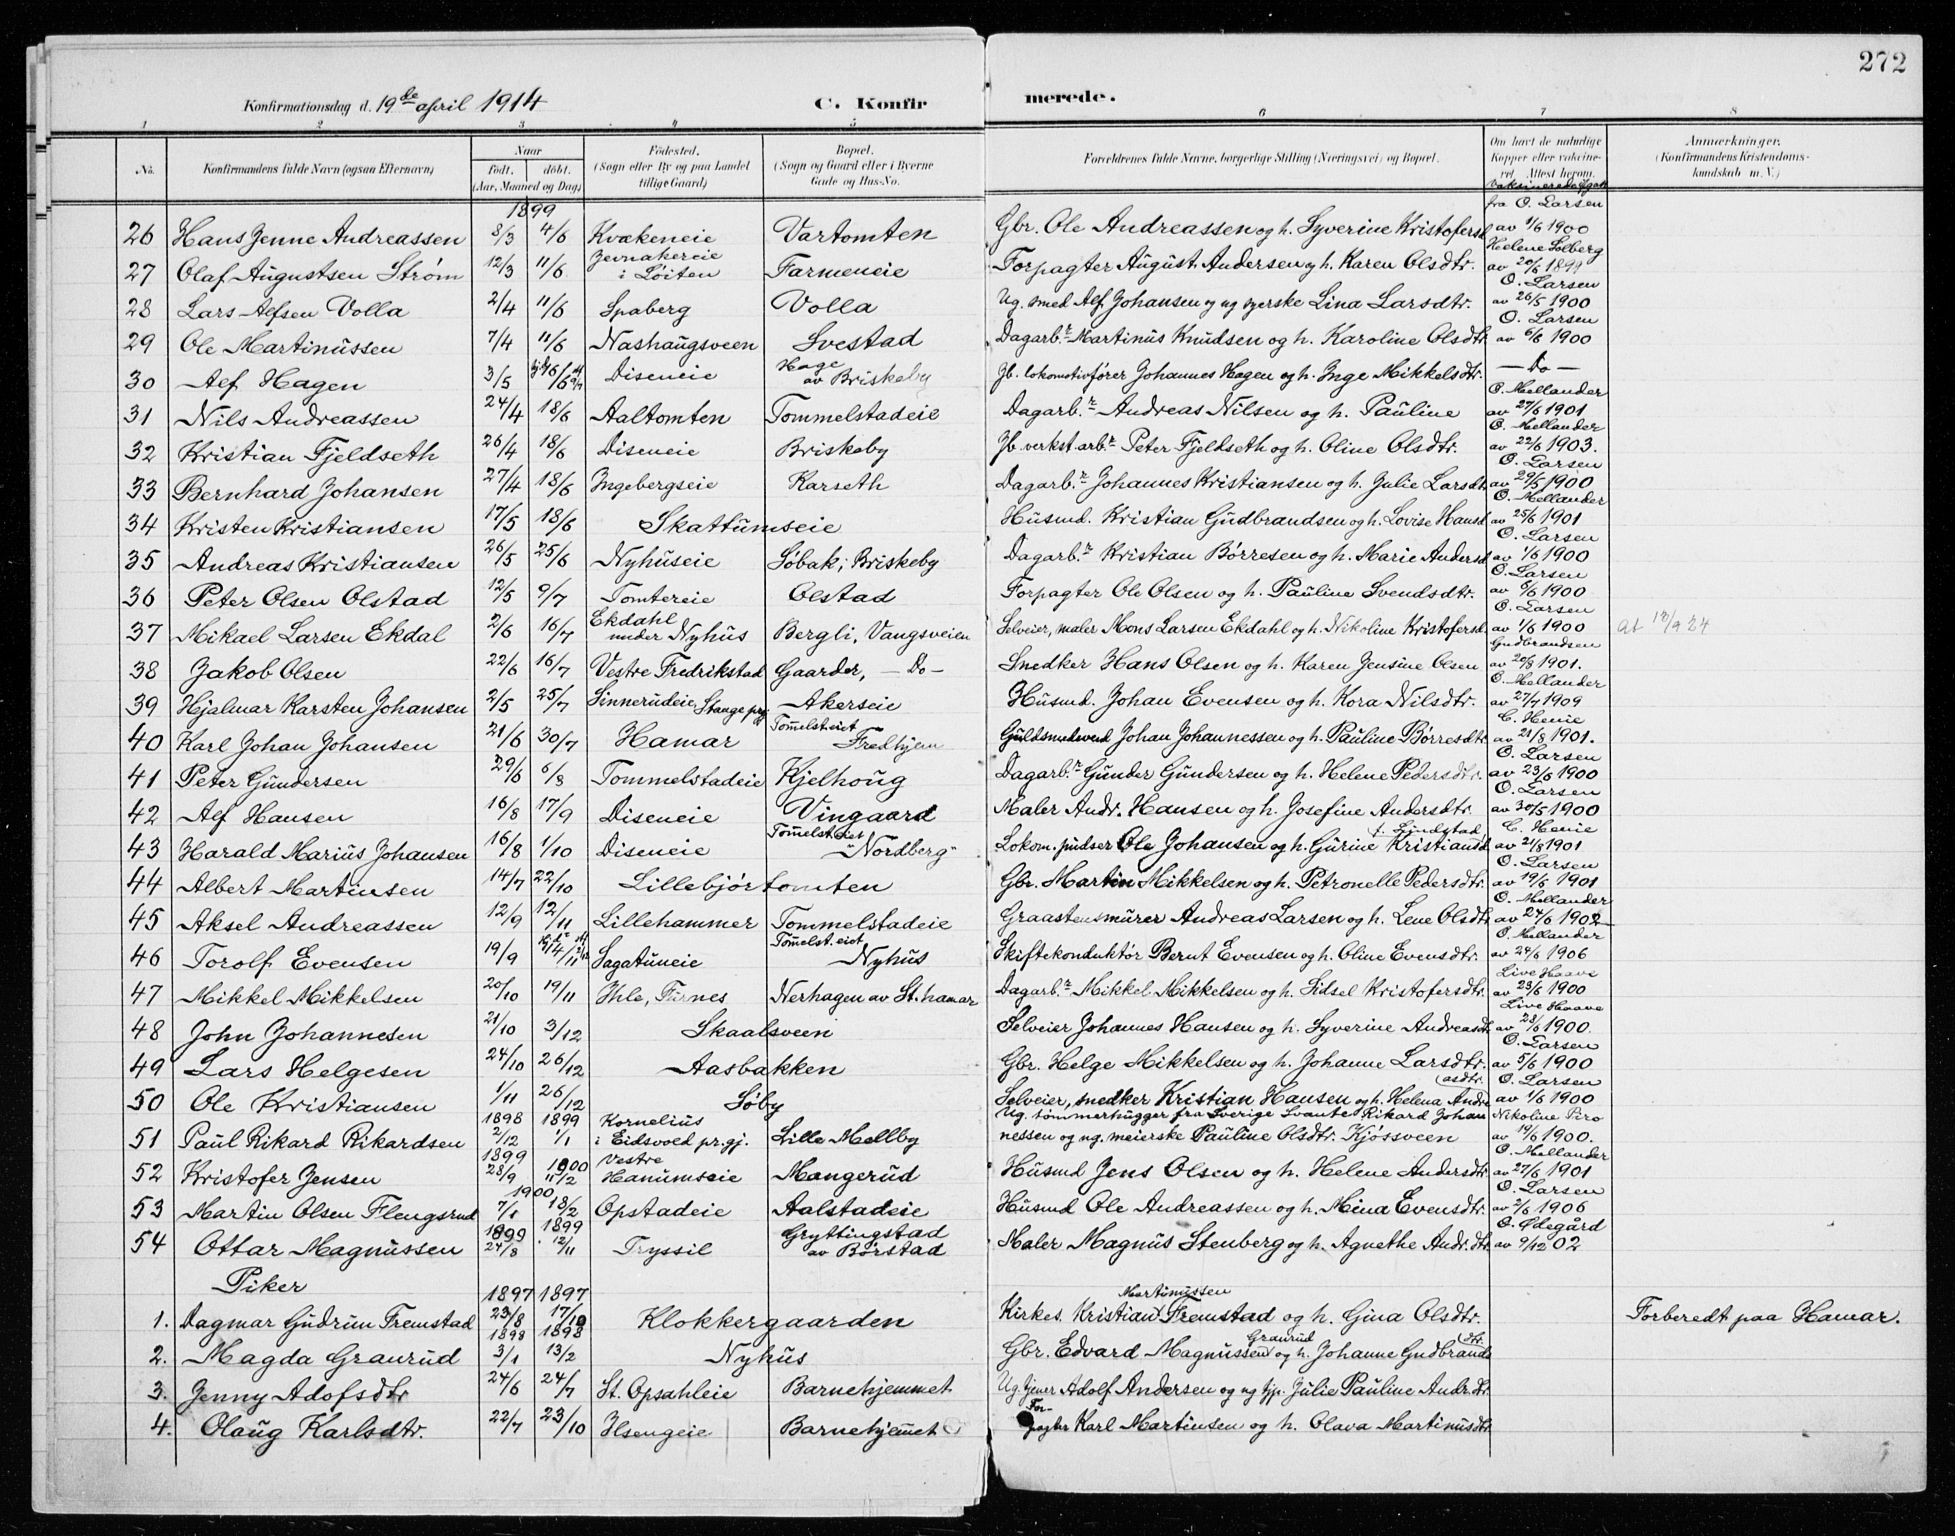 272
Konfirmationsdag d. 19de april 1914 C. Konfirmerede.
1 2 3 4 5 6 7 8
No. Konfirmandens fulde Navn (ogsaa Efternavn) Naar født. døbt. (Aar, Maaned og Dag) Fødested. (Sogn eller By og paa Landet tillige Gaard) Bopæl. (Sogn og Gaard eller i Byerne Gade og Hus-No. Forældrenes fulde Navne, borgerlige Stilling (Næringsvei) og Bopæl. Om havt de naturlige Kopper eller vaccineret. Attest herom. Anmærkninger. (Konfirmandens Kristendomskundskab m. V.)
1899
26 Hans Jenne Andreassen 8/3 4/6 Kvækeneie Vartomten Gbr. Ole Andreassen og h. Syverine Kristofersd. fra O. Larsen av 1/6 1900
27 Olaf Augustsen Strøm 12/3 11/6 Jevnakereie i Løiten Farmeneie Forpagter August Andersen og h. Karen Olsdtr. Helene Solberg av 20/6 1899
28 Lars Alfsen Volla 2/4 11/6 Spaberg Volla Ug. smed Alf Johansen og ug syerske Lina Larsdtr. O. Larsen av 26/5 1900
29 Ole Martinussen 7/4 11/6 Nashaugsveen Svestad Dagarb.r Martinus Knudsen og h. Karoline Olsdtr. O. Larsen av 6/6 1900
30 Alf Hagen 3/5 Diseneie Hage av Briskeby Jb. lokomotivfører Johannes Hagen og h. Inge Mikkelsdtr. — Do —
31 Nils Andreassen 24/4 18/6 Aaltomten Tommelstadeie Dagarb.r Andreas Nilsen og h. Pauline O. Mellander av 27/6 1901
32 Kristian Fjeldseth 26/4 18/6 Diseneie Briskeby Jb. verkst. arb.r Peter Fjeldseth og h. Oline Olsdtr. O. Mellander av 22/6 1903.
33 Bernhard Johansen 27/4 18/6 Ingebergseie Karseth Dagarb.r Johannes Kristiansen og h. Julie Larsdtr. O. Larsen av 29/5 1900
34 Kristen Kristiansen 17/5 18/6 Skattumseie Husmd. Kristian Gudbrandsen og h. Lovise Hansd. O. Mellander av 25/6 1901
35 Andreas Kristiansen 26/5 25/6 Nyhuseie Søbak; Briskeby Dagarb.r Kristian Børresen og h. Marie Andersd. O. Larsen av 1/6 1900
36 Peter Olsen Olstad 12/5 9/7 Tomtereie Olstad Forpagter Ole Olsen og h. Pauline Svendsdtr. O. Larsen av 6/6 1900
37 Mikael Larsen Ekdal 2/6 16/7 Ekdahl under Nyhus Bergli, Vangsveien Selveier, maler Mons Larsen Ekdahl og h. Nikoline Kristofersd. O. Larsen av 1/6 1900 at 12/9 24
38 Jakob Olsen 22/6 16/7 Vestre Fredrikstad Gaarder, — Do — Snedker Hans Olsen og h. Karen Jensine Olsen Gudbrandsen av 20/8 1901.
39 Hjalmar Karsten Johansen 2/5 25/7 Sinnerudeie, Stange prgj. Akerseie Husmd. Johan Evensen og h. Kora Nilsdtr. O. Mellander av 27/7 1909
40 Karl Johan Johansen 21/6 30/7 Hamar Tommelst.eiet Fredhjem Guldsmedsvend Johan Johannessen og h. Pauline Børresdtr. C. Henie av 21/8 1901.
41 Peter Gundersen 29/6 6/8 Tommelstadeie Kjelhoug Dagarb.r Gunder Gundersen og h. Helene Pedersdtr. O. Larsen av 23/6 1900
42 Alf Hansen 16/8 17/9 Diseneie Vingaard Maler Andr. Hansen og h. Josefine Andersdtr. O. Larsen av 30/5 1900
43 Harald Marius Johansen 16/8 1/10 Diseneie Tommelst.eiet "Nordberg" Lokom. pudser Ole Johansen og h. Gurine Kristiansd. f. Lindstad C. Henie av 21/8 1901
44 Albert Martinsen 14/7 22/10 Lillebjørtomten Gbr. Martin Mikkelsen og h. Petronelle Pedersdtr. O. Larsen av 19/6 1901
45 Aksel Andreassen 12/9 12/11 Lillehammer Tommelstadeie Graastensmurer Andreas Larsen og h. Lene Olsdtr. O. Mellander av 24/6 1902
46 Torolf Evensen 19/9 Sagatuneie Tommelst.eiet Nyhus Skiftekonduktør Bernt Evensen og h. Oline Evensdtr. O. Mellander av 24/6 1906
47 Mikkel Mikkelsen 20/10 19/11 Ihle, Furnes Nerhagen av St. hamar Dagarb.r Mikkel Mikkelsen og h. Sidsel Kristofersdtr. Live Haave av 23/6 1900
48 John Johannesen 21/10 3/12 Skaalsveen Selveier Johannes Hansen og h. Syverine Andreasdtr. Live Haave av 28/6 1900.
49 Lars Helgesen 24/10 26/12 Aasbakken Gbr. Helge Mikkelsen og h. Johanne Larsdtr. O. Larsen av 5/6 1900
50 Ole Kristiansen 1/11 26/12 Søby Selveier, snedker Kristian Hansen og h. Helena Andreasdtr. O. Larsen av 1/6 1900
51 Paul Rikard Rikardsen 1898 2/12 1899 1/1 Kornelius i Eidsvold pr.gj. Lille Mellby Ug. tømmerhugger fra Sverige Svante Rikard Johannessen og ug. meierske Pauline Olsdtr. Kjøssveen Nikoline Piro av 14/6 1900.
52 Kristofer Jensen 1899 28/9 1900 11/2 Vestre Hanumseie Mangerud Husmd Jens Olsen og h. Helene Andersdtr. O. Mellander av 27/6 1901
53 Martin Olsen Flengsrud 1900 7/1 18/2 Opstadeie Aalstadeie Husmd Ole Andreassen og h. Mina Evensdtr. O. Larsen av 2/6 1906
54 Ottar Magnussen 1899 24/8 1899 12/11 Tryssil Gryttingstad av Børstad Maler Magnus Stenberg og h. Agnethe Andr.dtr. O. Ødegård av 9/12 02
Piker
1. Dagmar Gudrun Fremstad 1897 23/8 1897 17/10 Klokkergaarden Kirkes. Kristian Martinussen Fremstad og h. Gina Olsdtr. Forberedt paa Hamar.
2. Magda Granrud 1898 3/1 1898 13/2 Nyhus Gbr. Edvard Magnussen Granrud og h. Johanne Gudbrandsdtr.
3. Jenny Adofsdtr 24/6 24/7 St. Opsahleie Barnehjemmet Ug. tjener Adolf Andersen og ug tjp. Julie Pauline Andr.dtr.
4. Olaug Karlsdtr. 22/7 23/10 Ilsengeie Barnehjemmet Forpagter Karl Martinsen og h. Olava Martinusdtr.